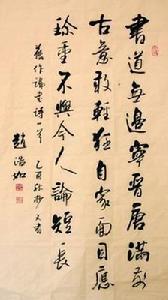 書道無邊晉唐滿
古意敢輕狂自家面目應
珍重不與今人論短長
舊作論書詩一首 乙酉秋
趙